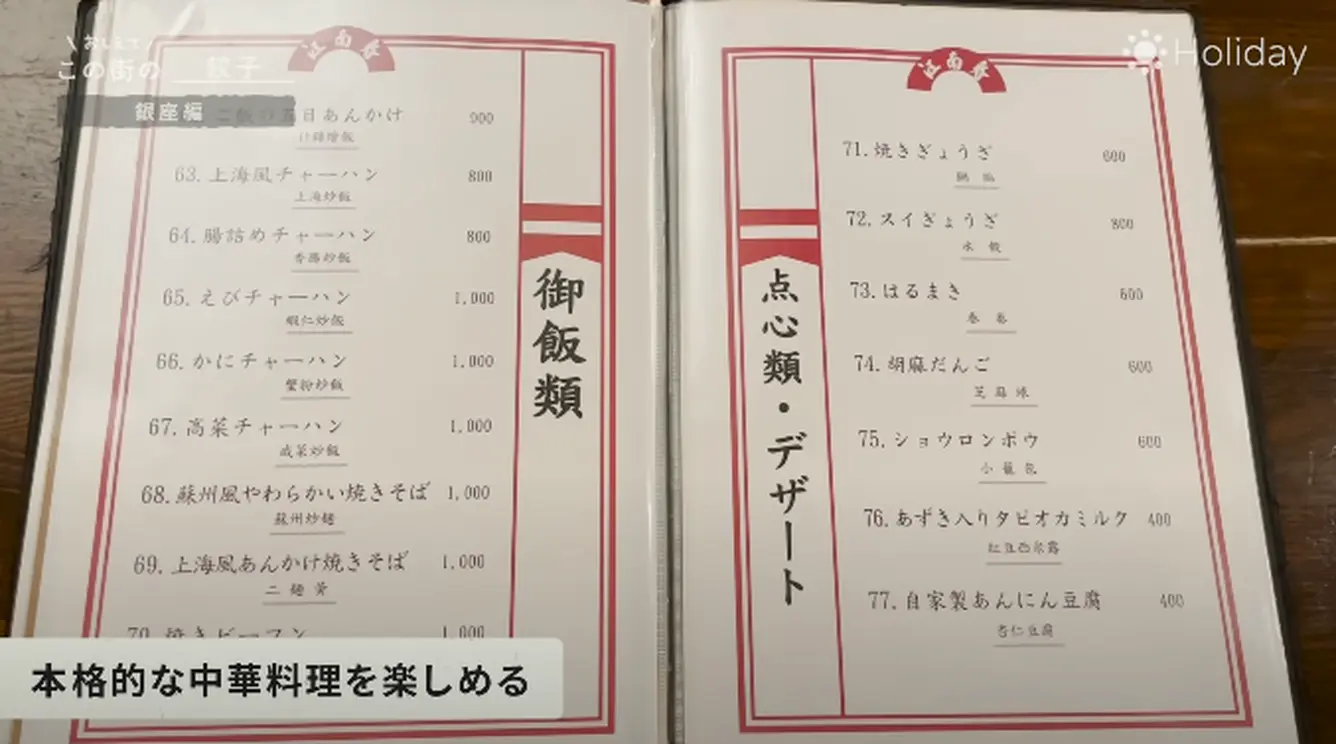 \おしえて/
この街の 餃子
銀座編
Holiday
江南春
ご飯の五目あんかけ 900
63. 上海風チャーハン 800
上海炒飯
64. 腸詰めチャーハン 800
香腸炒飯
65. えびチャーハン 1,000
蝦仁炒飯
66. かにチャーハン 1,000
蟹粉炒飯
67. 高菜チャーハン 1,000
咸菜炒飯
68. 蘇州風やわらかい焼きそば 1,000
蘇州炒麺
69. 上海風あんかけ焼きそば 1,000
二麺黄
70. 焼きビーフン 1,000
御飯類
江南春
点心類・デザート
71. 焼きぎょうざ 600
72. スイぎょうざ 800
水餃
73. はるまき 600
春巻
74. 胡麻だんご 600
芝麻球
75. ショウロンポウ 600
小籠包
76. あずき入りタピオカミルク 400
紅豆西米露
77. 自家製あんにん豆腐 400
杏仁豆腐
本格的な中華料理を楽しめる